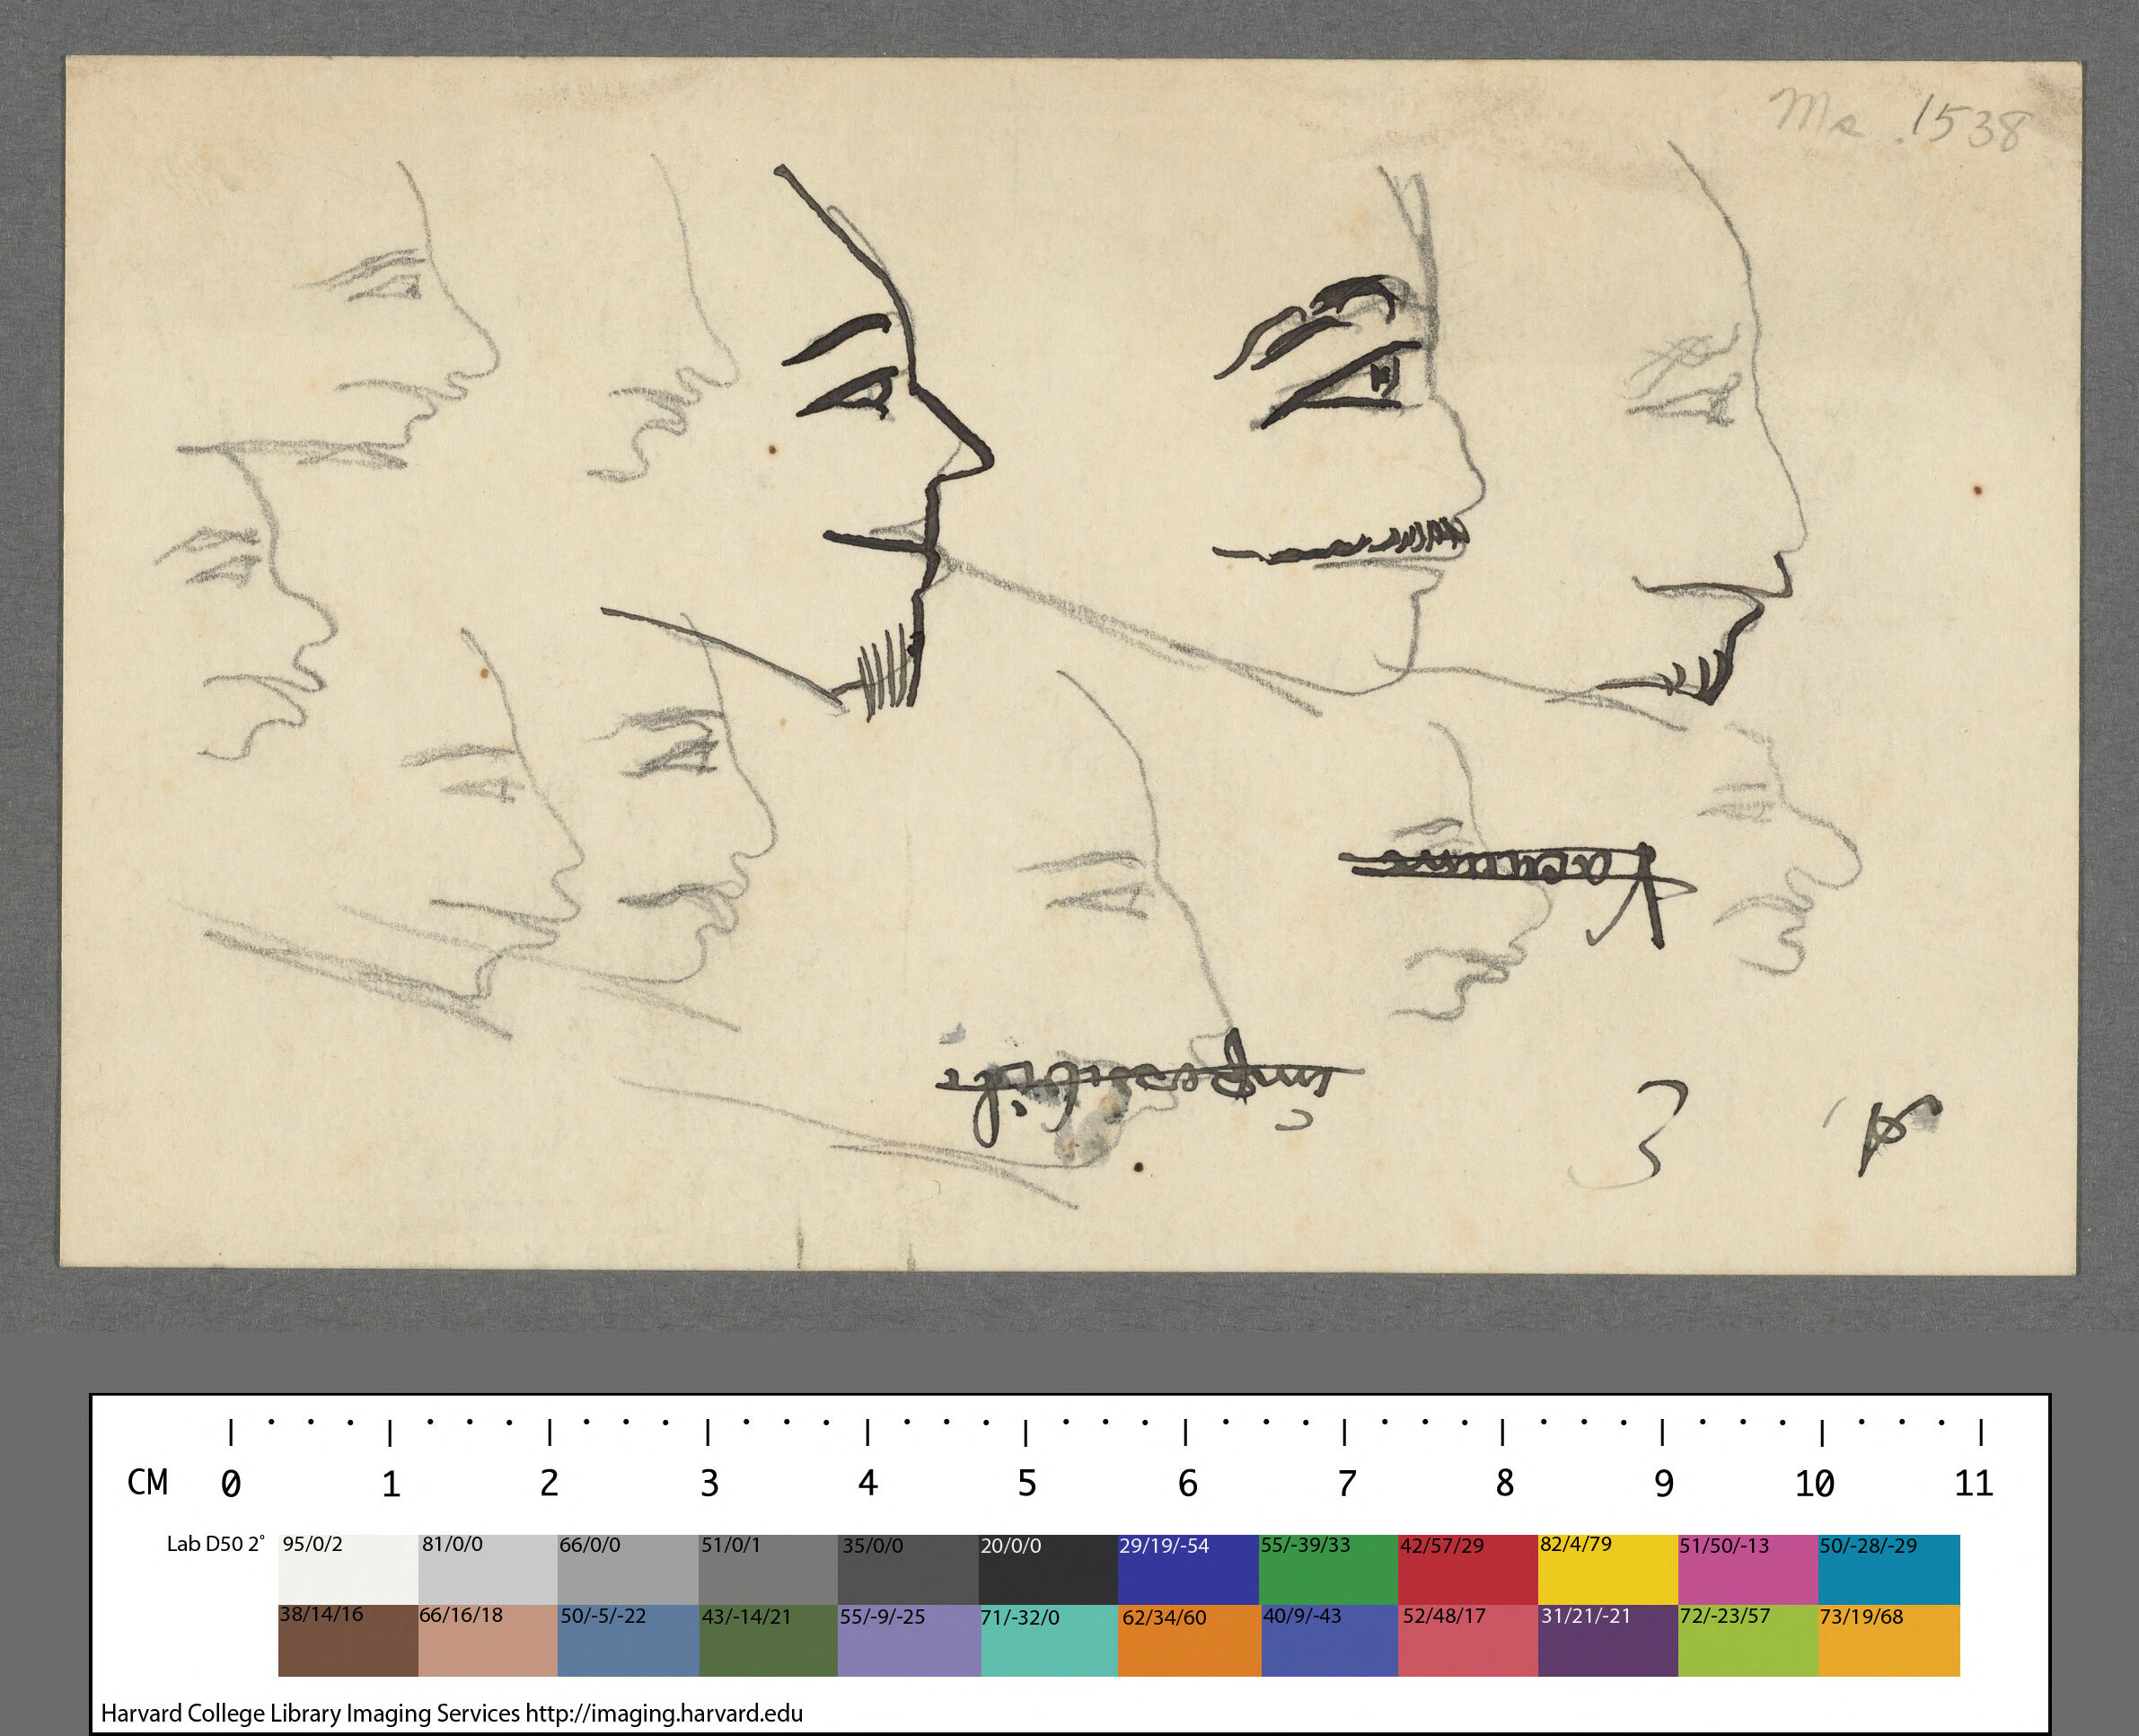 Ms .1538
CM 0 1 2 3 4 5 6 7 8 9 10 11
Lab D50 2° 95/0/2 81/0/0 66/0/0 51/0/1 35/0/0 20/0/0 29/19/-54 55/-39/33 42/57/29 82/4/79 51/50/-13 50/-28/-29
38/14/16 66/16/18 50/-5/-22 43/-14/21 55/-9/-25 71/-32/0 62/34/60 40/9/-43 52/48/17 31/21/-21 72/-23/57 73/19/68
Harvard College Library Imaging Services http://imaging.harvard.edu